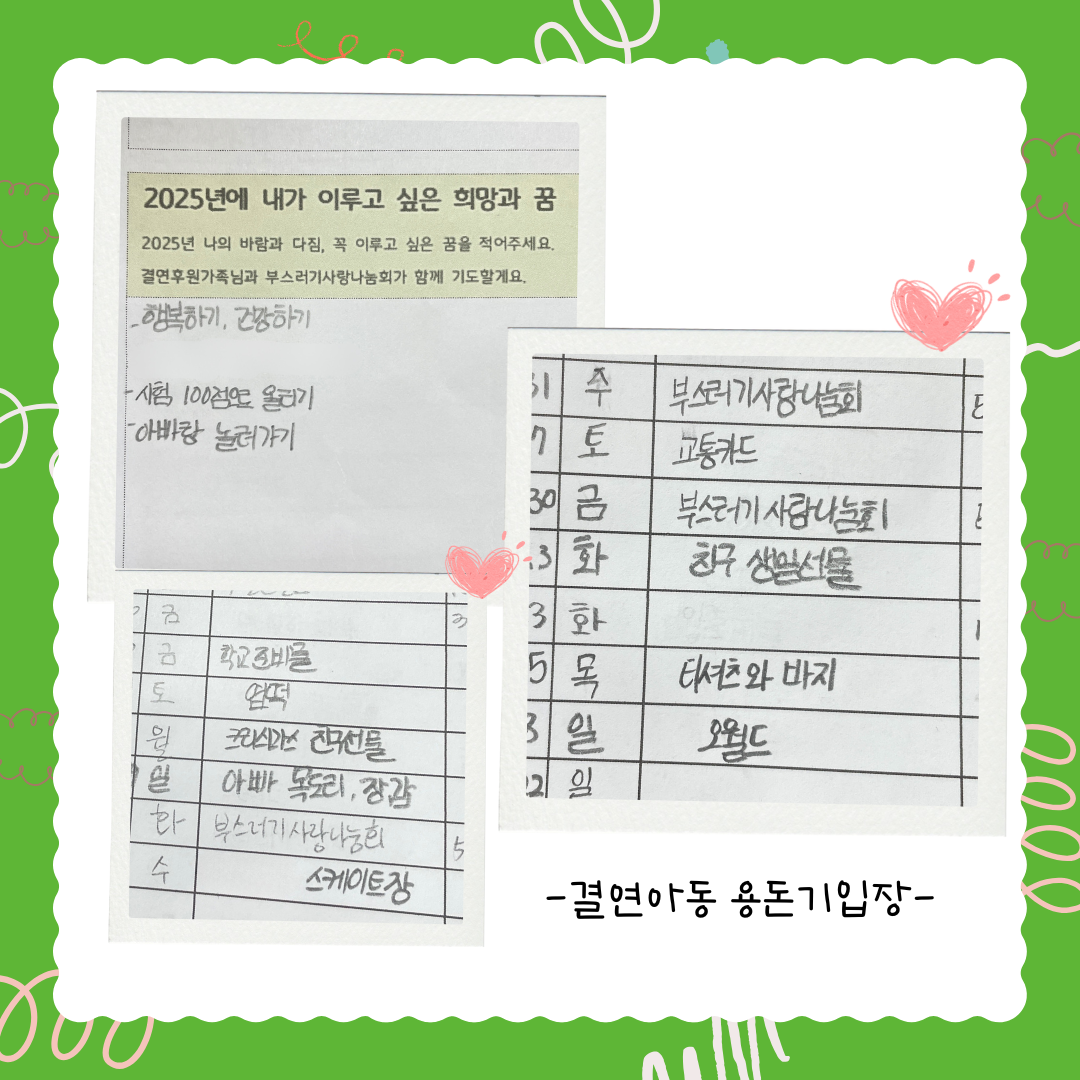 2025년에 내가 이루고 싶은 희망과 꿈
2025년 나의 바람과 다짐, 꼭 이루고 싶은 꿈을 적어주세요.
결연후원가족님과 부스러기사랑나눔회가 함께 기도할게요.
- 행복하기, 건강하기
- 시험 100점으로 올리기
- 아빠랑 놀러가기
31 수 부스러기사랑나눔회
7 토 교통카드
30 금 부스러기사랑나눔회
.3 화 친구 생일선물
3 화
5 목 티셔츠와 바지
3 일 오월드
22 일
금
금 학교준비물
토 엽떡
월 크리스마스 친구선물
일 아빠 목도리, 장갑
화 부스러기사랑나눔회 5
수 스케이트장
-결연아동 용돈기입장-